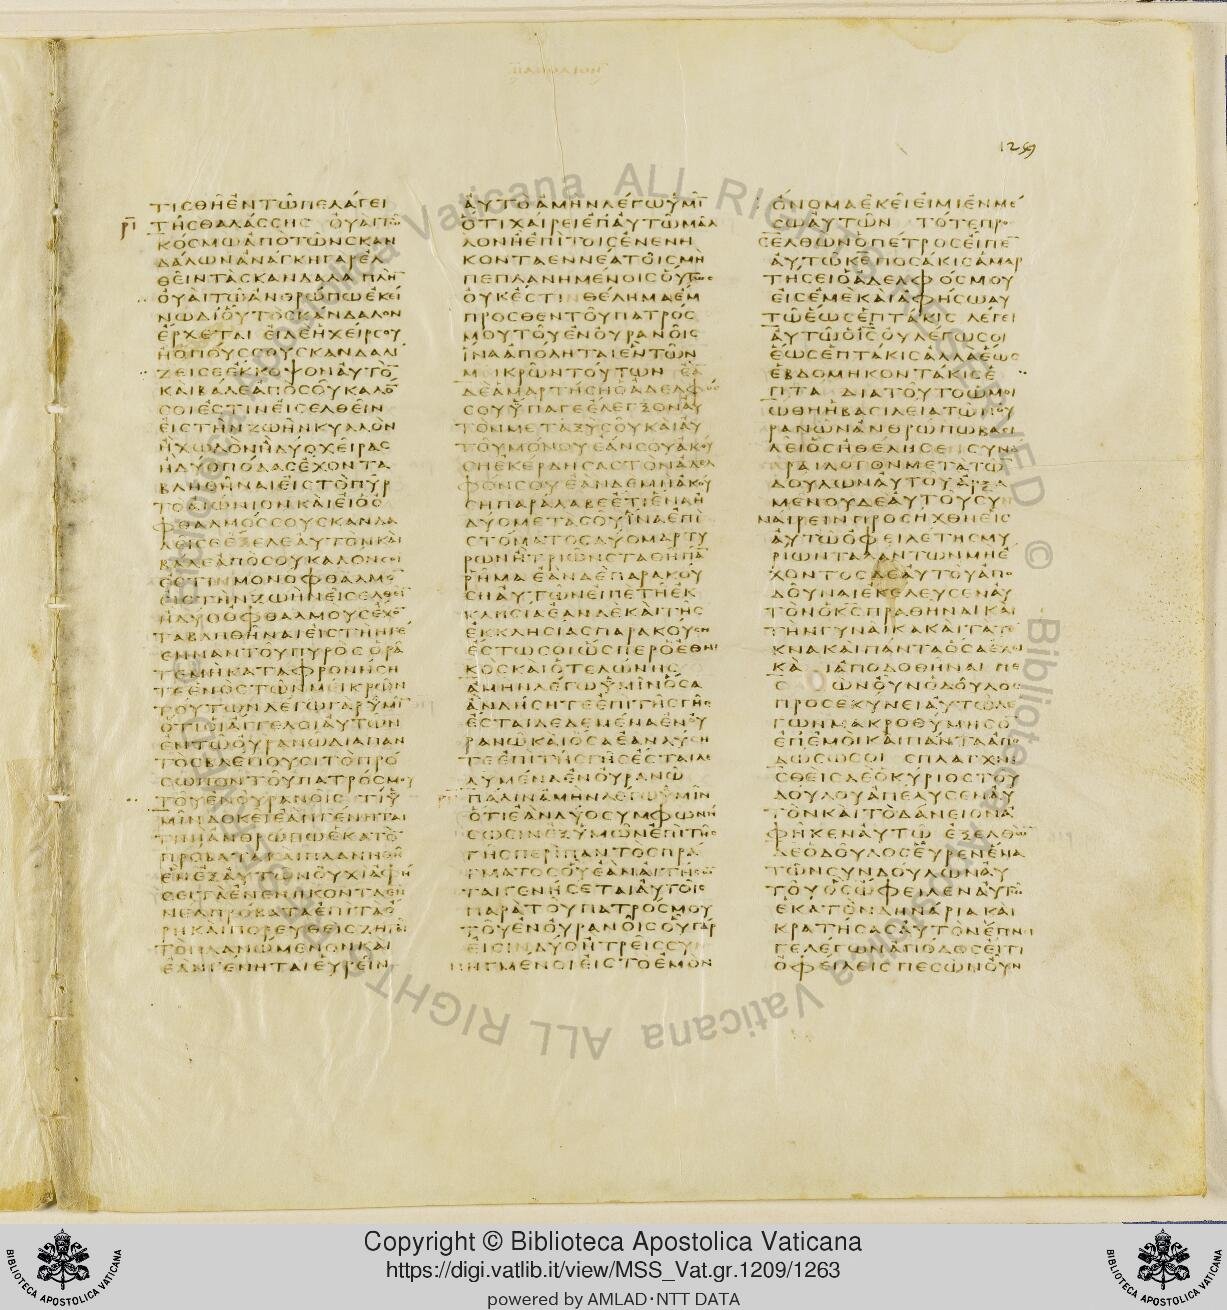 1259
ΤΙΣΘΗΕΝΤΩΠΕΛΑΓΕΙ
ΤΗΣΘΑΛΑΣΣΗΣ ΟΥΑΙΤΩ
ΚΟΣΜΩΑΠΟΤΩΝΣΚΑΝ
ΔΑΛΩΝΑΝΑΓΚΗΓΑΡΕΛ
ΘΕΙΝΤΑΣΚΑΝΔΑΛΑ ΠΛΗ
ΟΥΑΙΤΩΑΝΘΡΩΠΩΕΚΕΙ
ΝΩΔΙΟΥΤΟΣΚΑΝΔΑΛΟΝ
ΕΡΧΕΤΑΙ ΕΙΔΕΗΧΕΙΡΣΟΥ
ΗΟΠΟΥΣΣΟΥΣΚΑΝΔΑΛΙ
ΖΕΙΣΕΕΚΚΟΨΟΝΑΥΤΟ
ΚΑΙΒΑΛΕΑΠΟΣΟΥΚΑΛΟ
ΣΟΙΕΣΤΙΝΕΙΣΕΛΘΕΙΝ
ΕΙΣΤΗΝΖΩΗΝΚΥΛΛΟΝ
ΗΧΩΛΟΝΗΔΥΟΧΕΙΡΑΣ
ΗΔΥΟΠΟΔΑΣΕΧΟΝΤΑ
ΒΛΗΘΗΝΑΙΕΙΣΤΟΠΥΡ
ΤΟΑΙΩΝΙΟΝΚΑΙΕΙΟΟ
ΦΘΑΛΜΟΣΣΟΥΣΚΑΝΔΑ
ΛΕΙΣΕΕΞΕΛΕΑΥΤΟΝΚΑΙ
ΒΑΛΕΑΠΟΣΟΥΚΑΛΟΝΣΟΙ
ΕΣΤΙΝΜΟΝΟΦΘΑΛΜΟ
ΕΙΣΤΗΝΖΩΗΝΕΙΣΕΛΘΕΙ
ΗΔΥΟΟΦΘΑΛΜΟΥΣΕΧΟ
ΤΑΒΛΗΘΗΝΑΙΕΙΣΤΗΝΓΕ
ΕΝΝΑΝΤΟΥΠΥΡΟΣ ΟΡΑ
ΤΕΜΗΚΑΤΑΦΡΟΝΗΣΗ
ΤΕΕΝΟΣΤΩΝΜΕΙΚΡΩΝ
ΤΟΥΤΩΝΛΕΓΩΓΑΡΥΜΙ
ΟΤΙΟΙΑΓΓΕΛΟΙΑΥΤΩΝ
ΕΝΤΩΟΥΡΑΝΩΔΙΑΠΑΝ
ΤΟΣΒΛΕΠΟΥΣΙΤΟΠΡΟ
ΣΩΠΟΝΤΟΥΠΑΤΡΟΣΜΟΥ
ΤΟΥΕΝΟΥΡΑΝΟΙΣ ΤΙΥ
ΜΙΝΔΟΚΕΙΕΑΝΓΕΝΗΤΑΙ
ΤΙΝΙΑΝΘΡΩΠΩΕΚΑΤΟ
ΠΡΟΒΑΤΑΚΑΙΠΛΑΝΗΘΗ
ΕΝΕΞΑΥΤΩΝΟΥΧΙΑΦΗ
ΣΕΙΤΑΕΝΕΝΗΚΟΝΤΑΕΝ
ΝΕΑΠΡΟΒΑΤΑΕΠΙΤΑΟ
ΡΗΚΑΙΠΟΡΕΥΘΕΙΣΖΗΤΕΙ
ΤΟΠΛΑΝΩΜΕΝΟΝΚΑΙ
ΕΑΝΓΕΝΗΤΑΙΕΥΡΕΙΝ
ΑΥΤΟΑΜΗΝΛΕΓΩΥΜΙ
ΟΤΙΧΑΙΡΕΙΕΠΑΥΤΩΜΑΛ
ΛΟΝΗΕΠΙΤΟΙΣΕΝΕΝΗ
ΚΟΝΤΑΕΝΝΕΑΤΟΙΣΜΗ
ΠΕΠΛΑΝΗΜΕΝΟΙΣΟΥΤΩΣ
ΟΥΚΕΣΤΙΝΘΕΛΗΜΑΕΜ
ΠΡΟΣΘΕΝΤΟΥΠΑΤΡΟΣ
ΜΟΥΤΟΥΕΝΟΥΡΑΝΟΙΣ
ΙΝΑΑΠΟΛΗΤΑΙΕΝΤΩΝ
ΜΕΙΚΡΩΝΤΟΥΤΩΝ ΕΑ
ΔΕΑΜΑΡΤΗΣΗΟΑΔΕΛΦΟΣ
ΣΟΥΥΠΑΓΕΕΛΕΓΞΟΝΑΥ
ΤΟΝΜΕΤΑΞΥΣΟΥΚΑΙΑΥ
ΤΟΥΜΟΝΟΥΕΑΝΣΟΥΑΚΟΥ
ΣΗΕΚΕΡΔΗΣΑΣΤΟΝΑΔΕΛ
ΦΟΝΣΟΥΕΑΝΔΕΜΗΑΚΟΥ
ΣΗΠΑΡΑΛΑΒΕΕΤΙΕΝΑΗ
ΔΥΟΜΕΤΑΣΟΥΙΝΑΕΠΙ
ΣΤΟΜΑΤΟΣΔΥΟΜΑΡΤΥ
ΡΩΝΗΤΡΙΩΝΣΤΑΘΗΠΑ
ΡΗΜΑΕΑΝΔΕΠΑΡΑΚΟΥ
ΣΗΑΥΤΩΝΕΙΠΕΤΗΕΚ
ΚΛΗΣΙΑΕΑΝΔΕΚΑΙΤΗΣ
ΕΚΚΛΗΣΙΑΣΠΑΡΑΚΟΥΣΗ
ΕΣΤΩΣΟΙΩΣΠΕΡΟΕΘΝΙ
ΚΟΣΚΑΙΟΤΕΛΩΝΗΣ
ΑΜΗΝΛΕΓΩΥΜΙΝΟΣΑ
ΑΝΔΗΣΗΤΕΕΠΙΤΗΣΓΗΣ
ΕΣΤΑΙΔΕΔΕΜΕΝΑΕΝΟΥ
ΡΑΝΩΚΑΙΟΣΑΕΑΝΛΥΣΗ
ΤΕΕΠΙΤΗΣΓΗΣΕΣΤΑΙΛΕ
ΛΥΜΕΝΑΕΝΟΥΡΑΝΩ
ΠΑΛΙΝΑΜΗΝΛΕΓΩΥΜΙΝ
ΟΤΙΕΑΝΔΥΟΣΥΜΦΩΝΗ
ΣΩΣΙΝΕΞΥΜΩΝΕΠΙΤΗΣ
ΓΗΣΠΕΡΙΠΑΝΤΟΣΠΡΑ
ΓΜΑΤΟΣΟΥΕΑΝΑΙΤΗΣΩ
ΤΑΙΓΕΝΗΣΕΤΑΙΑΥΤΟΙΣ
ΠΑΡΑΤΟΥΠΑΤΡΟΣΜΟΥ
ΤΟΥΕΝΟΥΡΑΝΟΙΣΟΥΓΑΡ
ΕΙΣΙΝΔΥΟΗΤΡΕΙΣΣΥ
ΝΗΓΜΕΝΟΙΕΙΣΤΟΕΜΟΝ
ΟΝΟΜΑΕΚΕΙΕΙΜΙΕΝΜΕ
ΣΩΑΥΤΩΝ ΤΟΤΕΠΡΟ
ΣΕΛΘΩΝΟΠΕΤΡΟΣΕΙΠΕ
ΑΥΤΩΚΕΠΟΣΑΚΙΣΑΜΑΡ
ΤΗΣΕΙΟΑΔΕΛΦΟΣΜΟΥ
ΕΙΣΕΜΕΚΑΙΑΦΗΣΩΑΥ
ΤΩΕΩΣΕΠΤΑΚΙΣ ΛΕΓΕΙ
ΑΥΤΩΟΙΣΟΥΛΕΓΩΣΟΙ
ΕΩΣΕΠΤΑΚΙΣΑΛΛΑΕΩΣ
ΕΒΔΟΜΗΚΟΝΤΑΚΙΣΕ
ΠΤΑ ΔΙΑΤΟΥΤΟΩΜΟΙ
ΩΘΗΗΒΑΣΙΛΕΙΑΤΩΝΟΥ
ΡΑΝΩΝΑΝΘΡΩΠΩΒΑΣΙ
ΛΕΙΟΣΗΘΕΛΗΣΕΝΣΥΝΑ
ΡΑΙΛΟΓΟΝΜΕΤΑΤΩ
ΔΟΥΛΩΝΑΥΤΟΥΑΡΞΑ
ΜΕΝΟΥΔΕΑΥΤΟΥΣΥ
ΝΑΙΡΕΙΝΠΡΟΣΗΧΘΗΕΙΣ
ΑΥΤΩΟΦΕΙΛΕΤΗΣΜΥ
ΡΙΩΝΤΑΛΑΝΤΩΝΜΗΕ
ΧΟΝΤΟΣΔΕΑΥΤΟΥΑΠΟ
ΔΟΥΝΑΙΕΚΕΛΕΥΣΕΝΑΥ
ΤΟΝΟΚΣΠΡΑΘΗΝΑΙΚΑΙ
ΤΗΝΓΥΝΑΙΚΑΚΑΙΤΑΤΕ
ΚΝΑΚΑΙΠΑΝΤΑΟΣΑΕΧΕΙ
ΚΑΙΑΠΟΔΟΘΗΝΑΙ ΠΕ
ΣΩΝΟΥΝΟΔΟΥΛΟΣ
ΠΡΟΣΕΚΥΝΕΙΑΥΤΩΛΕ
ΓΩΝΜΑΚΡΟΘΥΜΗΣΟ
ΕΠΕΜΟΙΚΑΙΠΑΝΤΑΑΠΟ
ΔΩΣΩΣΟΙ ΣΠΛΑΓΧΝΙ
ΣΘΕΙΣΔΕΟΚΥΡΙΟΣΤΟΥ
ΔΟΥΛΟΥΑΠΕΛΥΣΕΝΑΥ
ΤΟΝΚΑΙΤΟΔΑΝΕΙΟΝΑ
ΦΗΚΕΝΑΥΤΩ ΕΞΕΛΘΩ
ΔΕΟΔΟΥΛΟΣΕΥΡΕΝΕΝΑ
ΤΩΝΣΥΝΔΟΥΛΩΝΑΥ
ΤΟΥΟΣΩΦΕΙΛΕΝΑΥΤΩ
ΕΚΑΤΟΝΔΗΝΑΡΙΑΚΑΙ
ΚΡΑΤΗΣΑΣΑΥΤΟΝΕΠΝΙ
ΓΕΛΕΓΩΝΑΠΟΔΟΣΕΙΤΙ
ΟΦΕΙΛΕΙΣΠΕΣΩΝΟΥΝ
Copyright © Biblioteca Apostolica Vaticana
https://digi.vatlib.it/view/MSS_Vat.gr.1209/1263
powered by AMLAD·NTT DATA